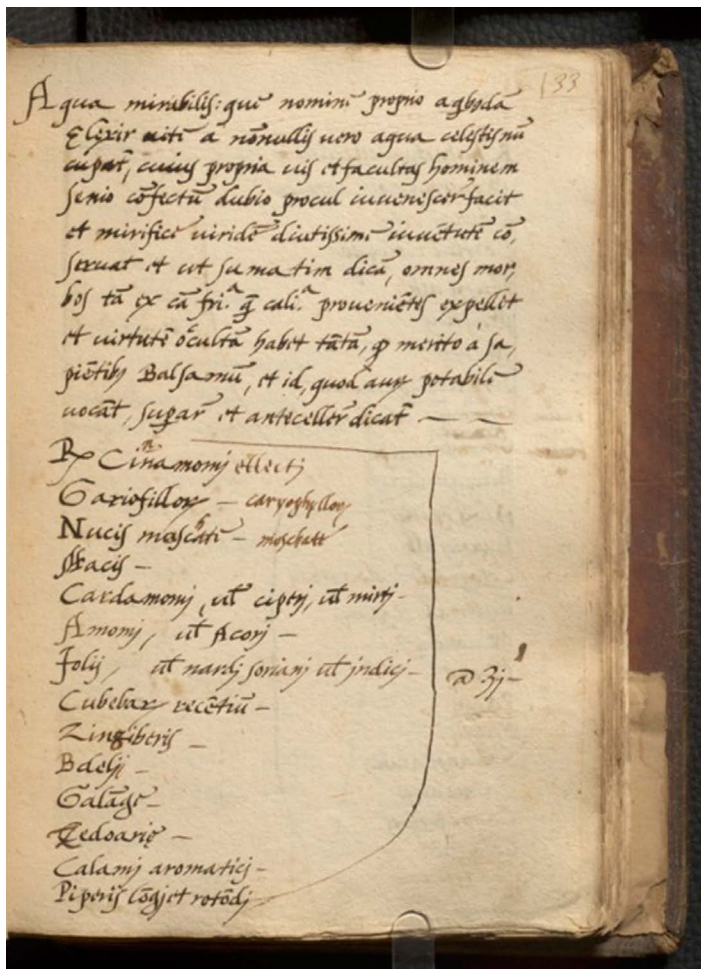 133
Aqua mirabilis: que nomine proprio a qbusdā
Elexir uite a nōnullis uero aqua celestis nū
cupat̄, cuius propria uis et facultas hominem
senio cōfectū dubio procul iuuenescer facit
et mirifice uiridē diutissime iuuētutē cō,
seruat et ut sumatim dicā, omnes mor,
bos tā ex cā fri.ᵃ q̄ cali.ᵃ prouenientes expellet
et uirtutē ocultā habet tātā, ꝙ merito à sa,
piētibꝫ Balsamū, et id, quod auꝝ potabile
uocāt, supar et anteceller dicat̄ —
℞ Cinnamomj ellectj
Gariofilloꝝ — caryophylloꝝ
Nucis moschate — moschatę
Macis —
Cardamomj, ul̄ ciprj, ul̄ mirtj —
Amomj, ul̄ Acorj —
Folij, ul̄ nardj sorianj ul̄ jndicj —
ā ʒj —
Cubebaꝝ recētiū —
Zingiberis —
Bdelij —
Galāge —
Zedoarię —
Calamj aromaticj —
Piperis lōgj et rotōdj